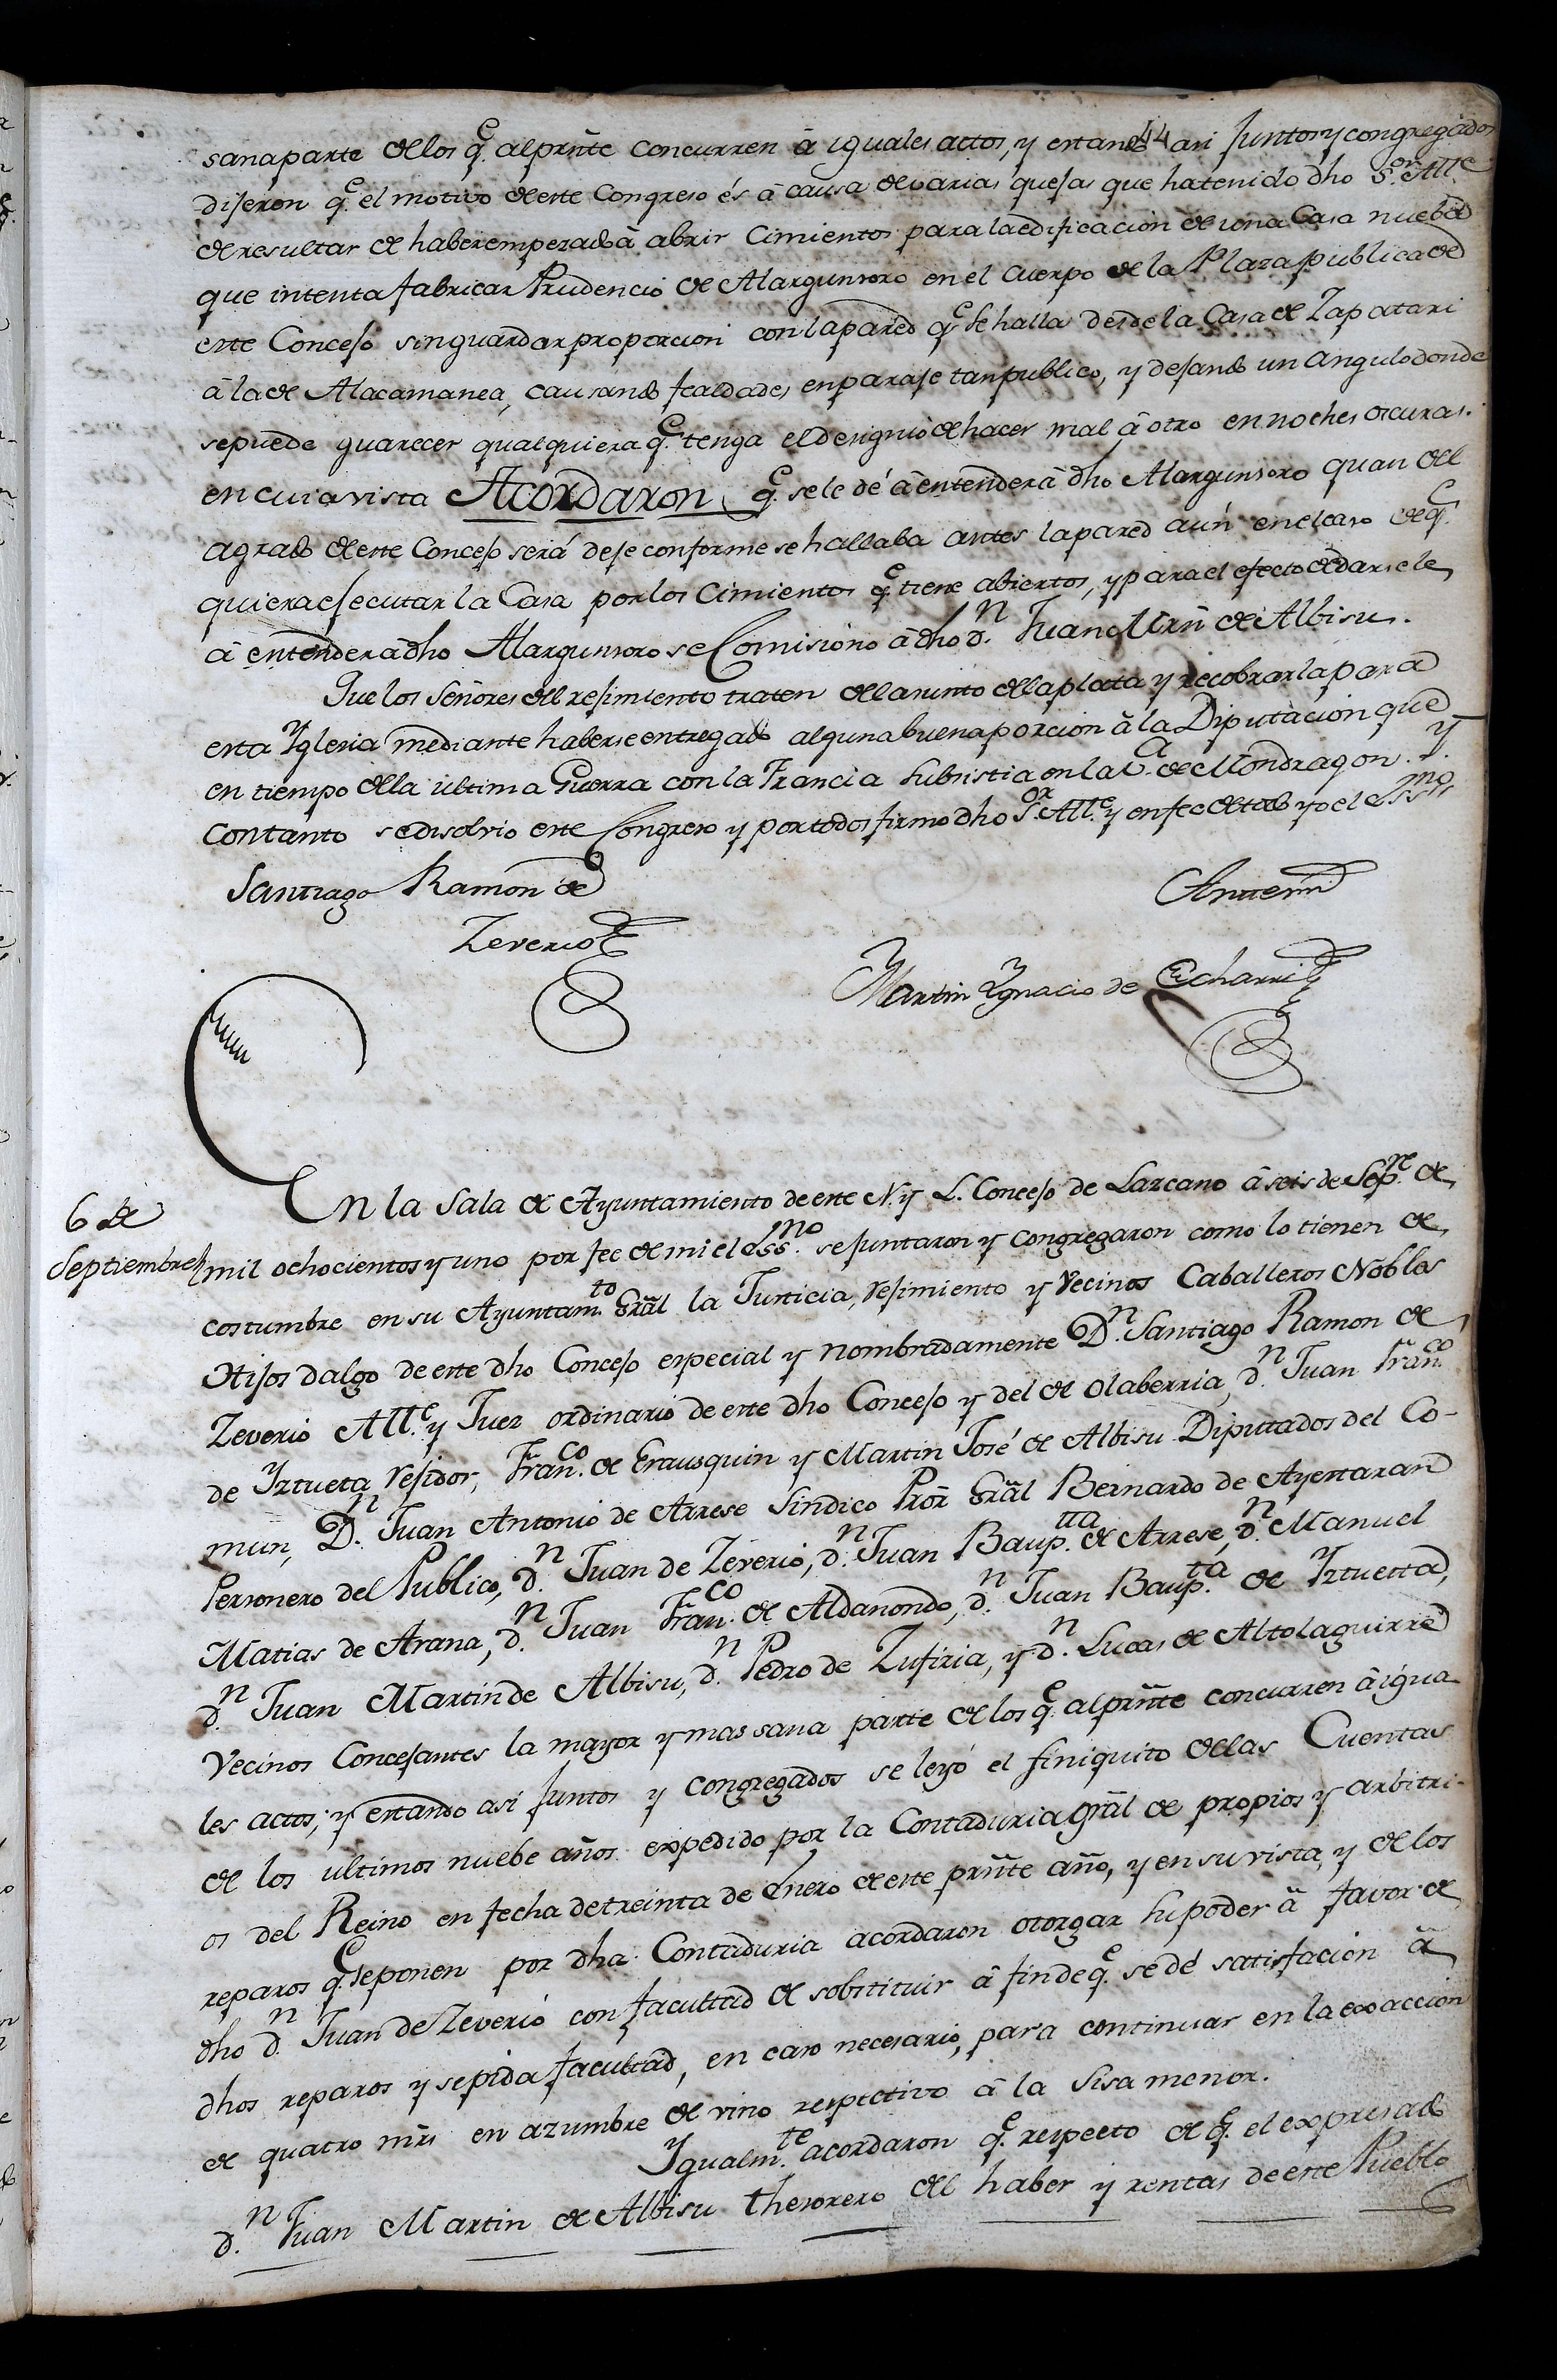 sana parte de los q.e al prñte concurren â iguales actos, y estando asi Juntos y congregados
44
dijeron q.e el motivo de este Congreso és â causa de varias quejas que ha tenido dho S.or Alle
de resultar de haber empezado â abrir Cimientos para la edificacion de una Casa nueba
que intenta fabricar Prudencio de Alargunsoro en el cuerpo de la Plaza publica de
este Concejo sin guardar proporcion con la pared q.e se halla desde la Casa de Zapatari
â la de Alacamanea, causando fealdades en paraje tan publico, y dejando un angulo donde
se puede guarecer qualquiera q.e tenga el designio de hacer mal â otro en noches oscuras.
en cuia vista Acordaron q.e se le dé â entender â dho Alargunsoro quan del
agrado de este Concejo será deje conforme se hallaba antes la pared aún en el caso de q.e
quiera ejecutar la Casa por los Cimientos q.e tiene abiertos, y para el efecto de darsele
â entender â dho Alargunsoro se Comisiono â dho d.n Juan Mrñ de Albisu.
Que los Señores del rejimiento traten del asunto de la plata y recobrarla para
esta Yglesia mediante haberse entregado alguna buena porcion â la Diputacion que
en tiempo de la ultima Guerra con la Francia subsistia en la V.a de Mondragon. Y
con tanto se disolvio este Congreso y por todos firmo dho S.or Alle. y en fee de todo yo el Ess.mo
Santiago Ramon de
Zeverio
Antemi
Martin Ygnacio de Echarri
6 de
Septiembre
En la Sala de Ayuntamiento de este N. y L. Concejo de Lazcano â seis de Sep.re de
mil ochocientos y uno por fee de mi el Ess.no se juntaron y congregaron como lo tienen de
costumbre en su Ayuntam.to Grãl la Justicia, rejimiento y Vecinos Caballeros Nobles
Hijos dalgo de este dho Concejo especial y nombradamente D.n Santiago Ramon de
Zeverio Alle. y Juez ordinario de este dho Concejo y del de Olaberria, d.n Juan Fran.co
de Yztueta rejidor, Fran.co de Erausquin y Martin José de Albisu Diputados del Co-
mun, D.n Juan Antonio de Arrese Sindico Prõr Grãl Bernardo de Ayestaran
Personero del Publico, d.n Juan de Zeverio, d.n Juan Baup.tta de Arrese, d.n Manuel
Matias de Arana, d.n Juan Fran.co de Aldanondo, d.n Juan Baup.ta de Yztuetta,
d.n Juan Martin de Albisu, d.n Pedro de Zufiria, y d.n Lucas de Altolaguirre
Vecinos Concejantes la mayor y mas sana parte de los q.e al prñte concurren â igua
les actos; y estando asi Juntos y congregados se leyó el finiquito de las Cuentas
de los ultimos nuebe años expedido por la Contaduria grãl de propios y arbitri-
os del Reino en fecha de treinta de Enero de este prñte año, y en su vista, y de los
reparos q.e se ponen por dha Contaduria acordaron otorgar su poder â favor de
dho d.n Juan de Zeverio con facultad de sobstituir â fin de q.e se dé satisfacion â
dhos reparos y se pida facultad, en caso necesario, para continuar en la exaccion
de quatro mrs en azumbre de vino respectivo â la Sisa menor.
Ygualm.te acordaron q.e respecto de q.e el expresado
d.n Juan Martin de Albisu thesorero del haber y rentas de este Pueblo